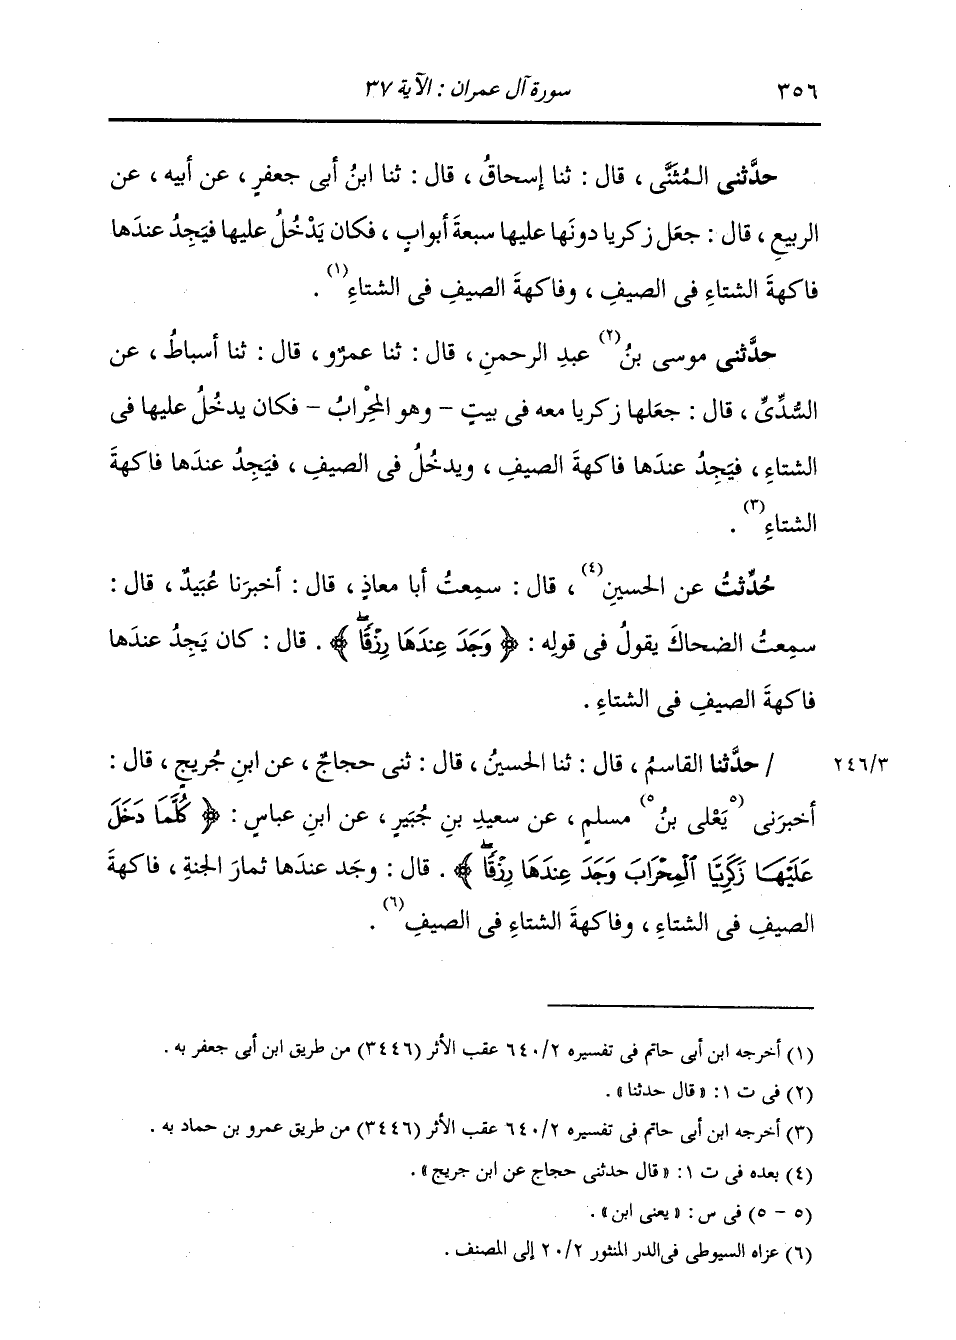 ٣٥٦ سورة آل عمران : الآية ٣٧
حدَّثنى المُثَنَّى ، قال : ثنا إسحاقُ ، قال : ثنا ابنُ أبى جعفرٍ ، عن أبيه ، عن
الربيعِ ، قال : جعَل زكريا دونَها عليها سبعةَ أبوابٍ ، فكان يَدْخُلُ عليها فيَجِدُ عندَها
فاكهةَ الشتاءِ فى الصيفِ ، وفاكهةَ الصيفِ فى الشتاءِ(١) .
حدَّثنى موسى بنُ(٢) عبدِ الرحمنِ ، قال : ثنا عمرٌو ، قال : ثنا أسباطُ ، عن
السُّدِّىِّ ، قال : جعَلها زكريا معه فى بيتٍ – وهو المِحْرابُ – فكان يدخُلُ عليها فى
الشتاءِ ، فيَجِدُ عندَها فاكهةَ الصيفِ ، ويدخُلُ فى الصيفِ ، فيَجِدُ عندَها فاكهةَ
الشتاءِ(٣) .
حُدِّثتُ عن الحسينِ(٤) ، قال : سمِعتُ أبا معاذٍ ، قال : أخبرَنا عُبَيدٌ ، قال :
سمِعتُ الضحاكَ يقولُ فى قولِه : ﴿ وَجَدَ عِندَهَا رِزْقًاۖ ﴾ . قال : كان يَجِدُ عندَها
فاكهةَ الصيفِ فى الشتاءِ .
٢٤٦/٣ / حدَّثنا القاسمُ ، قال : ثنا الحسينُ ، قال : ثنى حجاجٌ ، عن ابنِ جُريجٍ ، قال :
أخبرَنى (٥ يَعْلى بنُ ٥) مسلمٍ ، عن سعيدِ بنِ جُبَيرٍ ، عن ابنِ عباسٍ : ﴿ كُلَّمَا دَخَلَ
عَلَيْهَا زَكَرِيَّا ٱلْمِحْرَابَ وَجَدَ عِندَهَا رِزْقًاۖ ﴾ . قال : وجَد عندَها ثمارَ الجنةِ ، فاكهةَ
الصيفِ فى الشتاءِ ، وفاكهةَ الشتاءِ فى الصيفِ(٦) .
(١) أخرجه ابن أبى حاتم فى تفسيره ٦٤٠/٢ عقب الأثر (٣٤٤٦) من طريق ابن أبى جعفر به .
(٢) فى ت ١: « قال حدثنا » .
(٣) أخرجه ابن أبى حاتم فى تفسيره ٦٤٠/٢ عقب الأثر (٣٤٤٦) من طريق عمرو بن حماد به .
(٤) بعده فى ت ١: « قال حدثنى حجاج عن ابن جريج » .
(٥ – ٥) فى س : « يعنى ابن » .
(٦) عزاه السيوطى فى الدر المنثور ٢٠/٢ إلى المصنف .